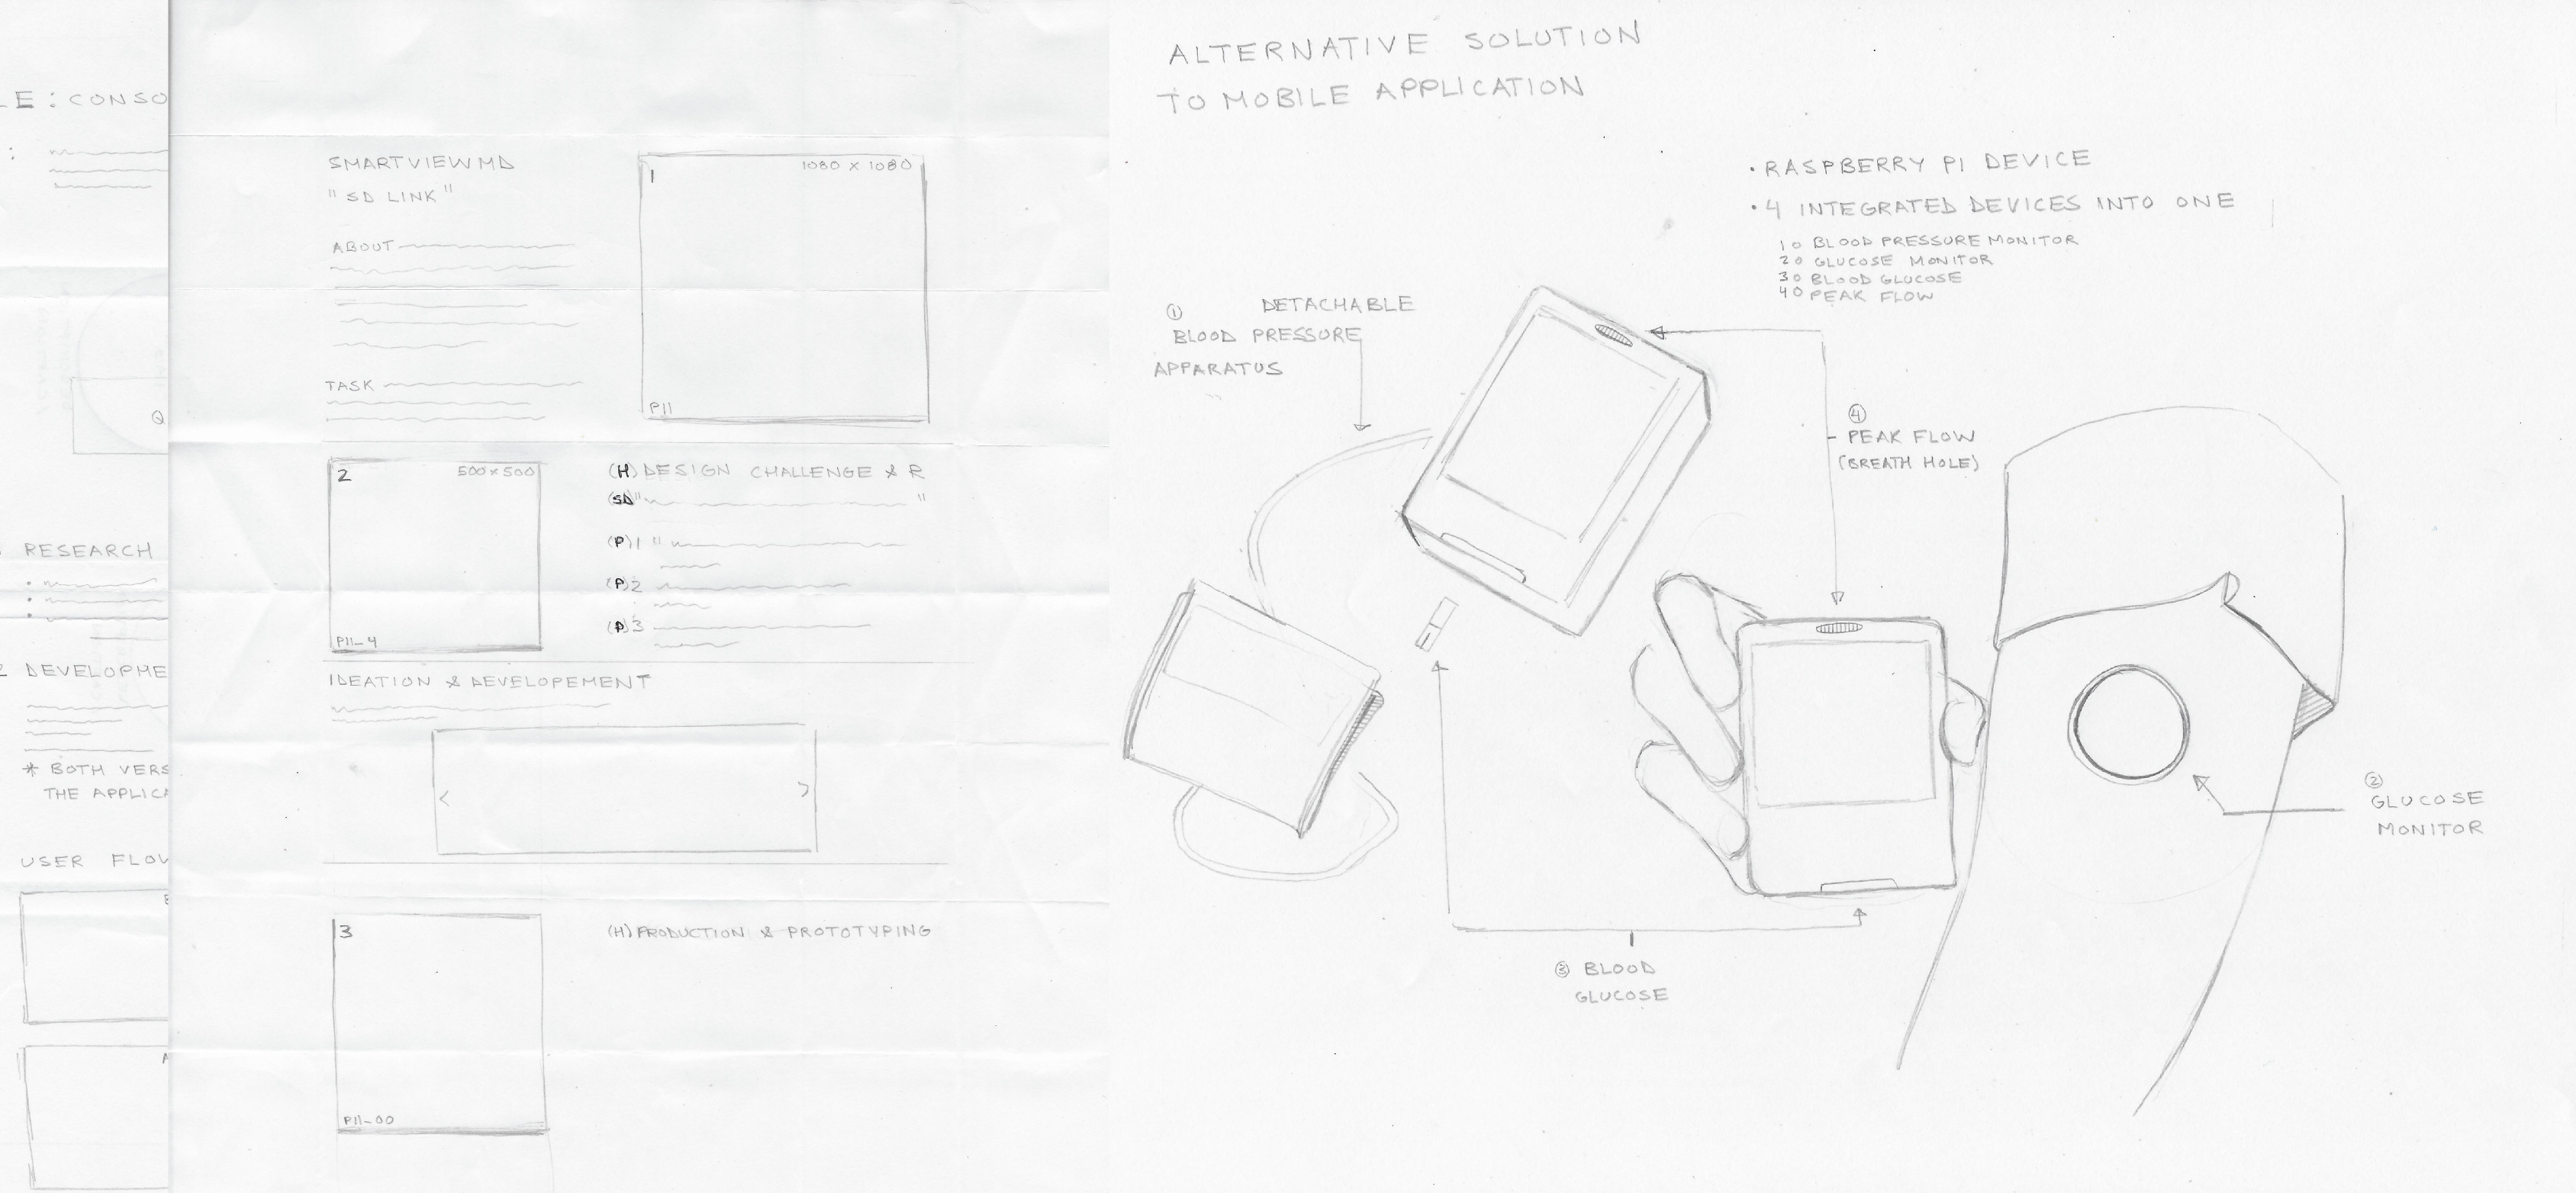 LE: CONSO
:
Q
RESEARCH
DEVELOPME
* BOTH VERS
THE APPLICA
USER FLOW
SMARTVIEWMD
"SD LINK"
ABOUT
TASK
1
1080 X 1080
P11
2
500 X 500
P11-4
(H) DESIGN CHALLENGE & R
(SD" "
(P)1 "
(P)2
(P)3
IDEATION & DEVELOPEMENT
< >
3
P11-00
(H) PRODUCTION & PROTOTYPING
ALTERNATIVE SOLUTION
TO MOBILE APPLICATION
• RASPBERRY PI DEVICE
• 4 INTEGRATED DEVICES INTO ONE
1o BLOOD PRESSURE MONITOR
2o GLUCOSE MONITOR
3o BLOOD GLUCOSE
4o PEAK FLOW
① DETACHABLE
BLOOD PRESSURE
APPARATUS
④
PEAK FLOW
(BREATH HOLE)
②
GLUCOSE
MONITOR
③ BLOOD
GLUCOSE